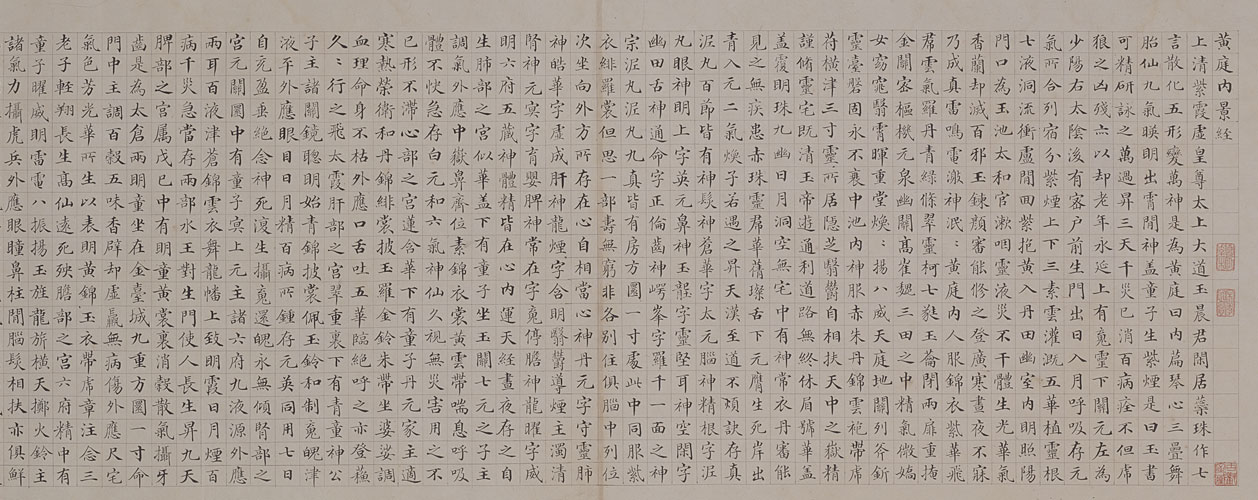 黃庭內景經
上清紫霞虛皇尊太上大道玉晨君閒居蘂珠作七
言散化五形變萬神是為黃庭曰內篇琴心三疊舞
胎仙九氣暎明出霄閒神盖童子生紫煙是曰玉書
可精研詠之萬過昇三天千災已消百病痊不但虎
狼之凶殘亦以却老年永延上有䰟靈下關元左為
少陽右太陰後有密户前生門出日入月呼吸存元
氣所合列宿分紫煙上下三素雲灌溉五華植靈根
七液洞流衝廬閒田紫抱黃入丹田幽室內明照陽
門口為玉池太和官漱咽靈液災不干體生光華氣
香蘭却滅百邪玉錬顏審能修之登廣寒晝夜不寐
乃成真雷鳴電激神泯〻黃庭內人服錦衣紫華飛
帬雲氣羅丹青緑條翠靈柯七蕤玉籥閉兩扉重掩
金關密樞機元泉幽關高崔巍三田之中精氣微嬌
女窈窕翳霄暉重堂煥〻揚八威天庭地關列斧斤
靈臺盤固永不衰中池內神服赤珠丹錦雲袍帶虎
符橫津三寸靈所居隱芝翳鬱自相扶天中之嶽精
謹修靈宅既清玉帝遊通利道路無終休眉號華蓋
蓋覆明珠九幽日月洞空無宅中有神常衣丹審能
見之無疾患赤珠靈帬華蒨璨舌下元膺生死岸出
青入元二氣煥子若遇之昇天漢至道不煩訣存真
泥丸百節皆有神髮神蒼華字太元腦神精根字泥
丸眼神明上字英元鼻神玉壟字靈堅耳神空閑字
幽田舌神通命字正倫齒神崿峯字羅千一面之神
宗泥丸泥丸九真皆有房方圓一寸處此中同服紫
衣緋羅裳但思一部壽無窮非各別住俱腦中列位
次坐向外方所存在心自相當心神丹元字守靈肺
神皓華字虛成肝神龍煙字含明翳鬱導煙主濁清
腎神元冥字育嬰脾神常在字魂停膽神龍曜字威
明六府五藏神體精皆在心內運天經晝夜存之自
生肺部之宮似華蓋下有童子坐玉闕七元之子主
調氣外應中嶽鼻齊位素錦衣裳黃雲帶喘息呼吸
體不快急存白元和六氣神仙久視無災害用之不
已形不滯心部之宮蓮含華下有童子丹元家主適
寒熱榮衛和丹錦緋裳披玉羅金鈴朱帶坐婆娑調
血理命身不枯外應口舌吐五華臨絕呼之亦登蘇
久〻行之飛太霞肝部之宮翠重裏下有青童神公
子主諸關鏡聰明始青錦披裳佩玉鈴和制魂魄津
液平外應眼目日月精百痾所鍾存元英同用七日
自充盈垂絕念神死復生攝魂還魄永無傾腎部之
宮元闕圓中有童子冥上元主諸六府九液源外應
兩耳百液津蒼錦雲衣舞龍幡上致明霞日月煙百
病千災急當存兩部水王對生門使人長生昇九天
脾部之宮屬戊己中有明童黃裳裏消穀散氣攝牙
齒是為太倉兩明童坐在金臺城九重方圓一寸命
門中主調百穀五味香辟却虛羸無病傷外應尺宅
氣色芳光華所生以表明黃錦玉衣帶虎章注念三
老子輕翔長生高仙遠死殃膽部之宮六府精中有
童子曜威明雷電八振揚玉旌龍旂橫天擲火鈴主
諸氣力攝虎兵外應眼瞳鼻柱閒腦髮相扶亦俱鮮